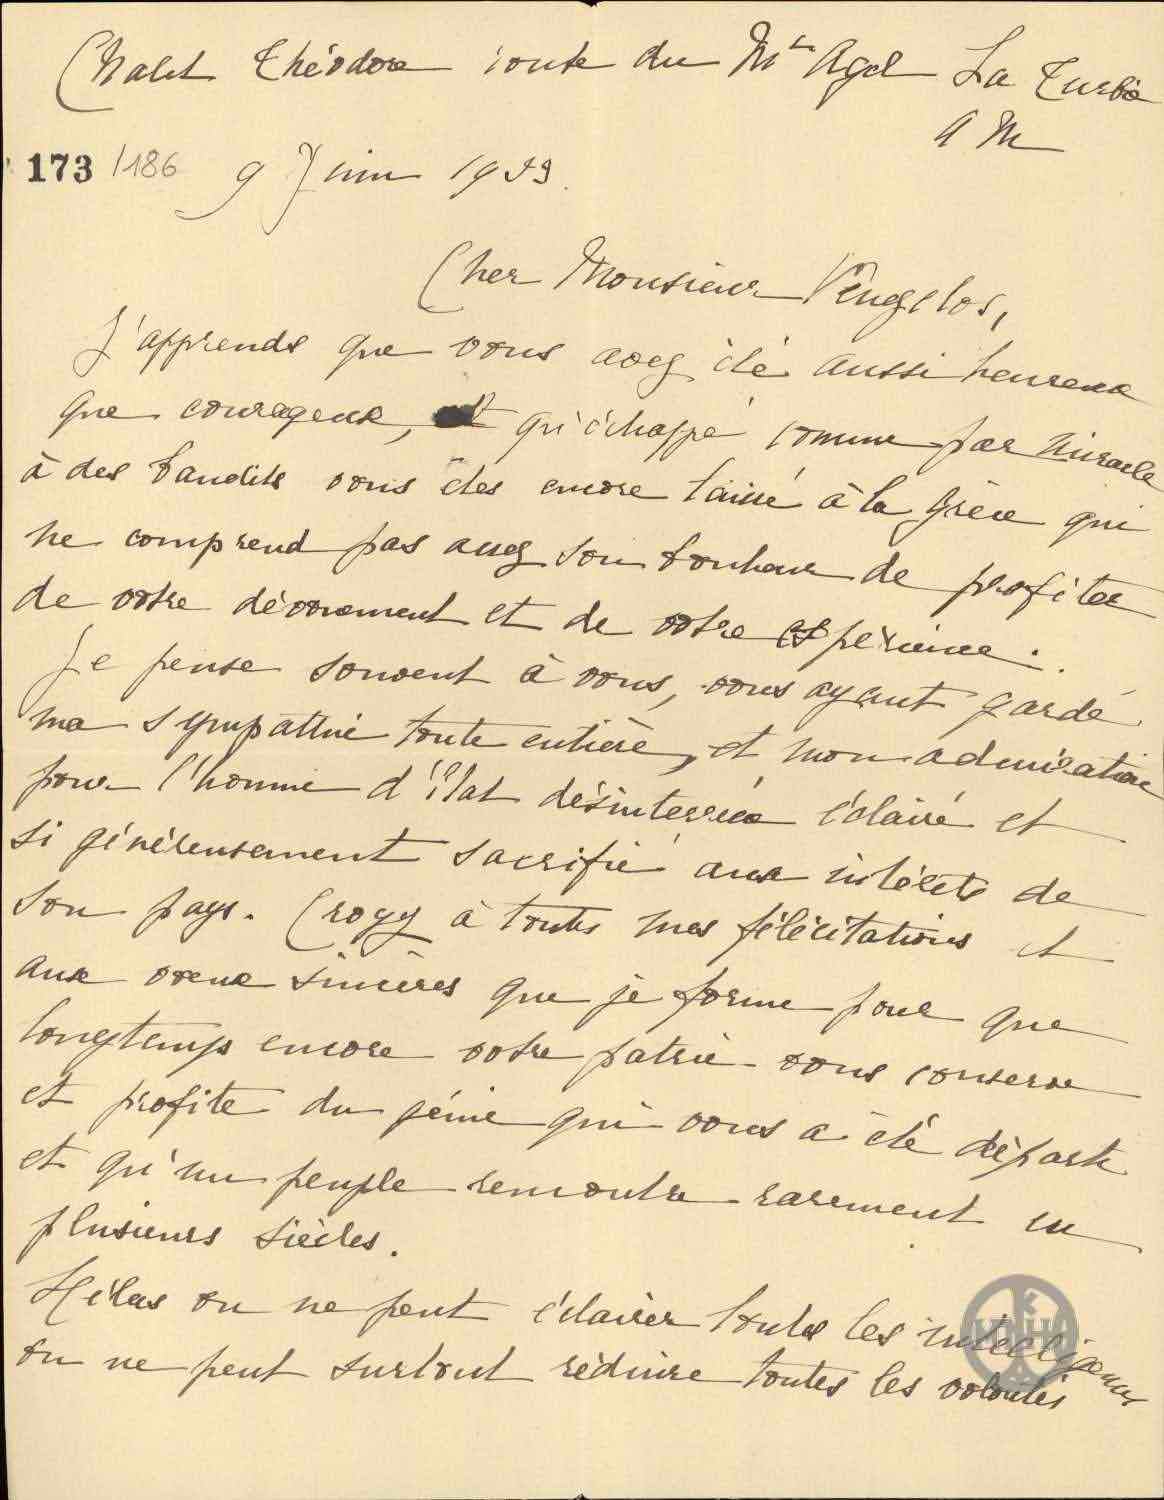 Chalet Théodore route du Mt Agel La Turbie
A M
173 /186 9 Juin 1933.
Cher Monsieur Venizelos,
J'apprends que vous avez été aussi heureux
que courageux, et qu'échappé comme par miracle
à des bandits vous êtes encore laissé à la Grèce qui
ne comprend pas assez son bonheur de profiter
de votre dévouement et de votre expérience.
Je pense souvent à vous, vous ayant gardé
ma sympathie toute entière, et mon admiration
pour l'homme d'État désintéressé éclairé et
si généreusement sacrifié aux intérêts de
son pays. Croyez à toutes mes félicitations et
aux voeux sincères que je forme pour que
longtemps encore votre patrie vous conserve
et profite du génie qui vous a été départi
et qu'un peuple rencontre rarement en
plusieurs siècles.
Hélas on ne peut éclairer toutes les intelligences
on ne peut surtout réduire toutes les volontés